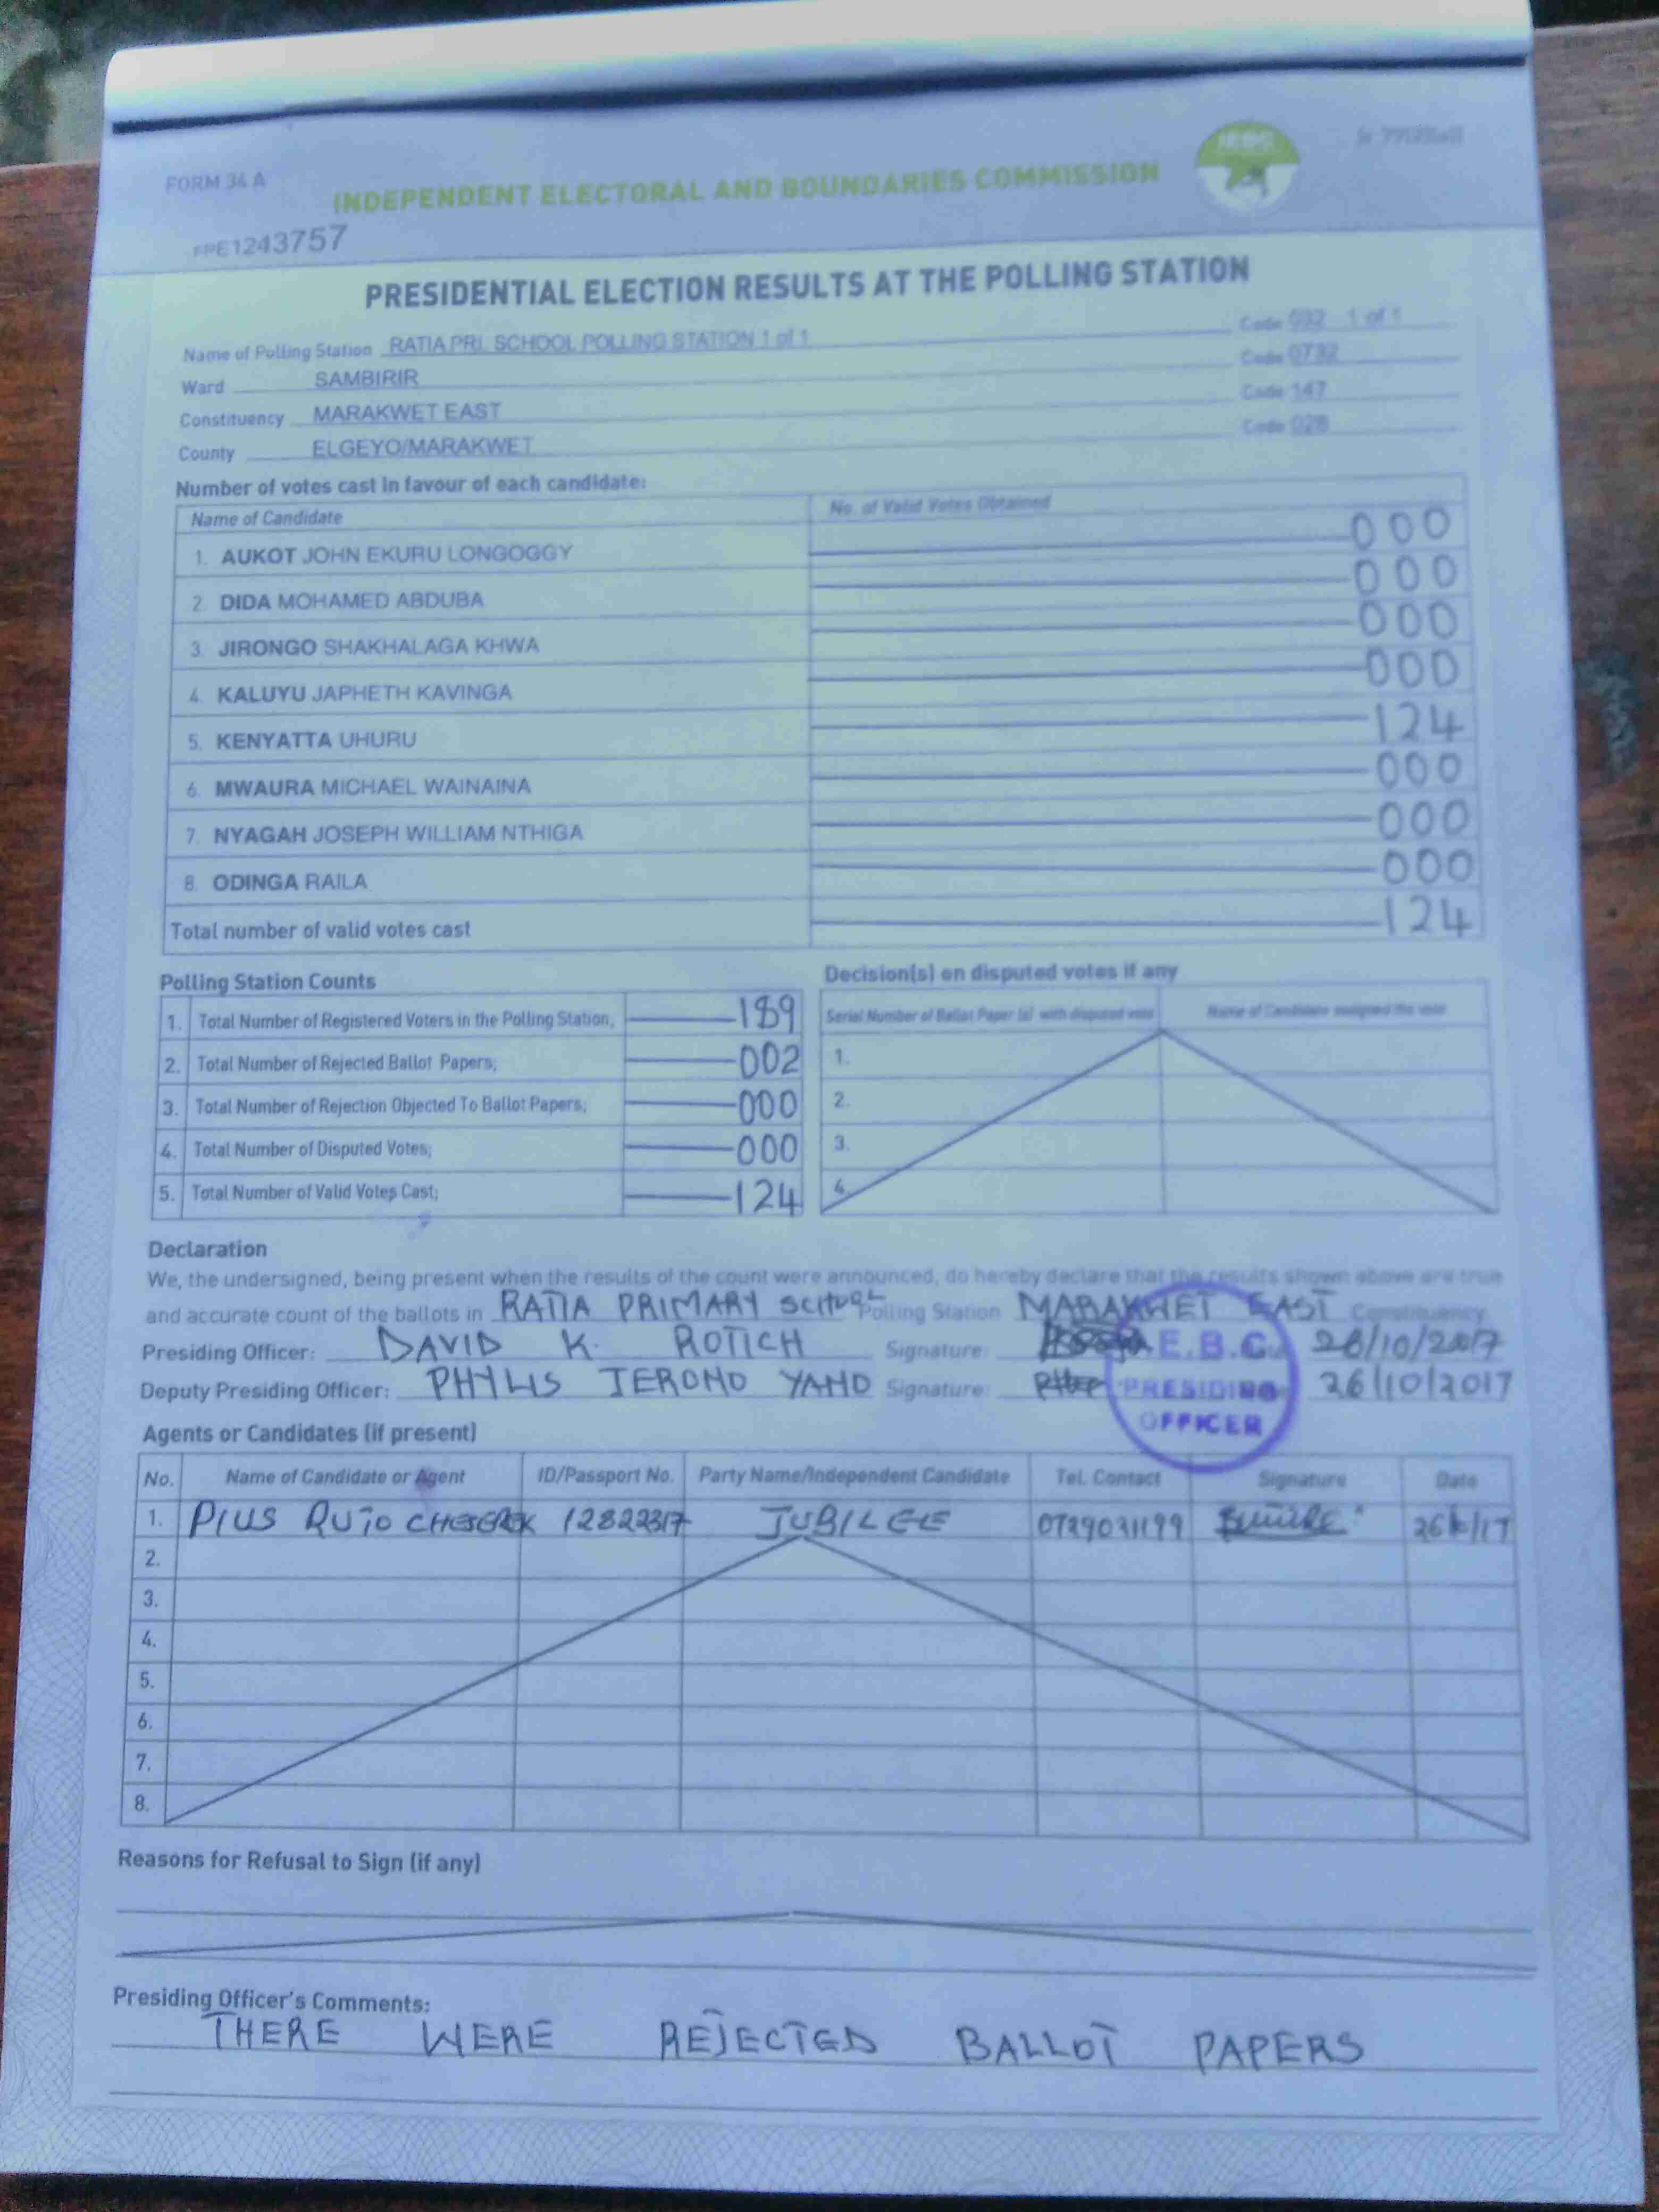 FORM 34 A
INDEPENDENT ELECTORAL AND BOUNDARIES COMMISSION
FPE1243757
PRESIDENTIAL ELECTION RESULTS AT THE POLLING STATION
Name of Polling Station RATIA PRI. SCHOOL POLLING STATION 1 of 1 Code 032 1 of 1
Ward SAMBIRIR Code 0732
Constituency MARAKWET EAST Code 147
County ELGEYO/MARAKWET Code 028
Number of votes cast in favour of each candidate:
Name of Candidate No. of Valid Votes Obtained
1. AUKOT JOHN EKURU LONGOGGY 000
2. DIDA MOHAMED ABDUBA 000
3. JIRONGO SHAKHALAGA KHWA 000
4. KALUYU JAPHETH KAVINGA 000
5. KENYATTA UHURU 124
6. MWAURA MICHAEL WAINAINA 000
7. NYAGAH JOSEPH WILLIAM NTHIGA 000
8. ODINGA RAILA 000
Total number of valid votes cast 124
Polling Station Counts
1. Total Number of Registered Voters in the Polling Station; 189
2. Total Number of Rejected Ballot Papers; 002
3. Total Number of Rejection Objected To Ballot Papers; 000
4. Total Number of Disputed Votes; 000
5. Total Number of Valid Votes Cast; 124
Decision(s) on disputed votes if any
Serial Number of Ballot Paper (s) with disputed vote Name of Candidate assigned the vote
1.
2.
3.
4.
Declaration
We, the undersigned, being present when the results of the count were announced, do hereby declare that the results shown above are true
and accurate count of the ballots in RATIA PRIMARY SCHOOL Polling Station MARAKWET EAST Constituency
Presiding Officer: DAVID K. ROTICH Signature: 26/10/2017
Deputy Presiding Officer: PHYLIS JERONO YANO Signature: 26/10/2017
I.E.B.C.
PRESIDING
OFFICER
Agents or Candidates (if present)
No. Name of Candidate or Agent ID/Passport No. Party Name/Independent Candidate Tel. Contact Signature Date
1. PIUS RUTO JUBILEE 0729031199
2.
3.
4.
5.
6.
7.
8.
Reasons for Refusal to Sign (if any)
Presiding Officer's Comments:
THERE WERE REJECTED BALLOT PAPERS